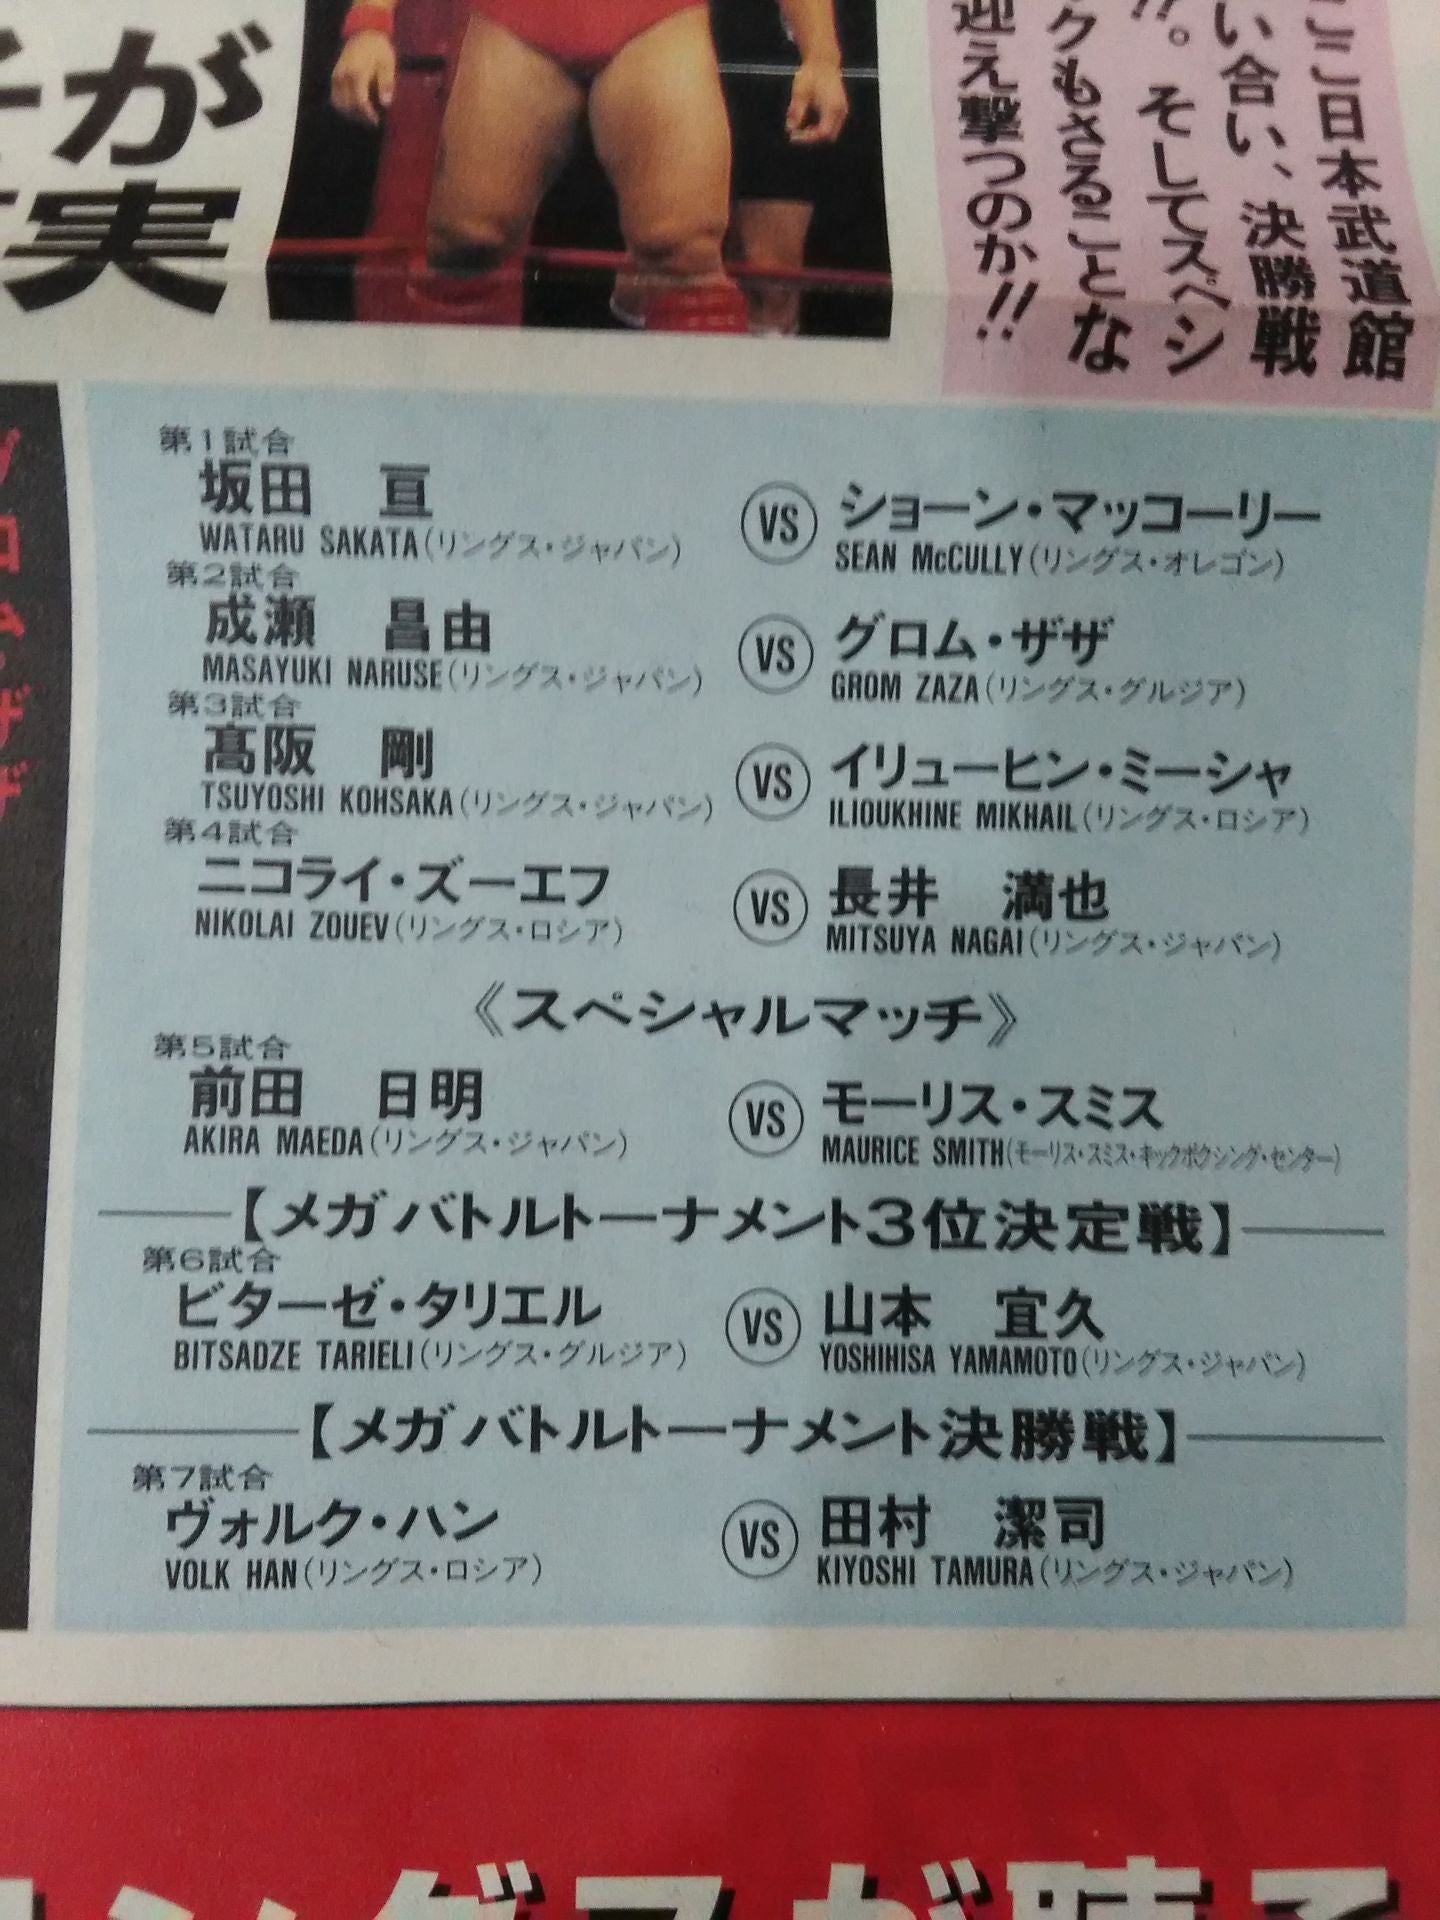 ここ日本武道館
い合い、決勝戦
!!。そしてスペシ
クもさることな
迎え撃つのか!!
が
実
グロム・ザザ
第1試合
坂田 亘
WATARU SAKATA(リングス・ジャパン)
VS
ショーン・マッコーリー
SEAN McCULLY(リングス・オレゴン)
第2試合
成瀬 昌由
MASAYUKI NARUSE(リングス・ジャパン)
VS
グロム・ザザ
GROM ZAZA(リングス・グルジア)
第3試合
髙阪 剛
TSUYOSHI KOHSAKA(リングス・ジャパン)
VS
イリューヒン・ミーシャ
ILIOUKHINE MIKHAIL(リングス・ロシア)
第4試合
ニコライ・ズーエフ
NIKOLAI ZOUEV(リングス・ロシア)
VS
長井 満也
MITSUYA NAGAI(リングス・ジャパン)
《スペシャルマッチ》
第5試合
前田 日明
AKIRA MAEDA(リングス・ジャパン)
VS
モーリス・スミス
MAURICE SMITH(モーリス・スミス・キックボクシング・センター)
【メガバトルトーナメント3位決定戦】
第6試合
ビターゼ・タリエル
BITSADZE TARIELI(リングス・グルジア)
VS
山本 宜久
YOSHIHISA YAMAMOTO(リングス・ジャパン)
【メガバトルトーナメント決勝戦】
第7試合
ヴォルク・ハン
VOLK HAN(リングス・ロシア)
VS
田村 潔司
KIYOSHI TAMURA(リングス・ジャパン)